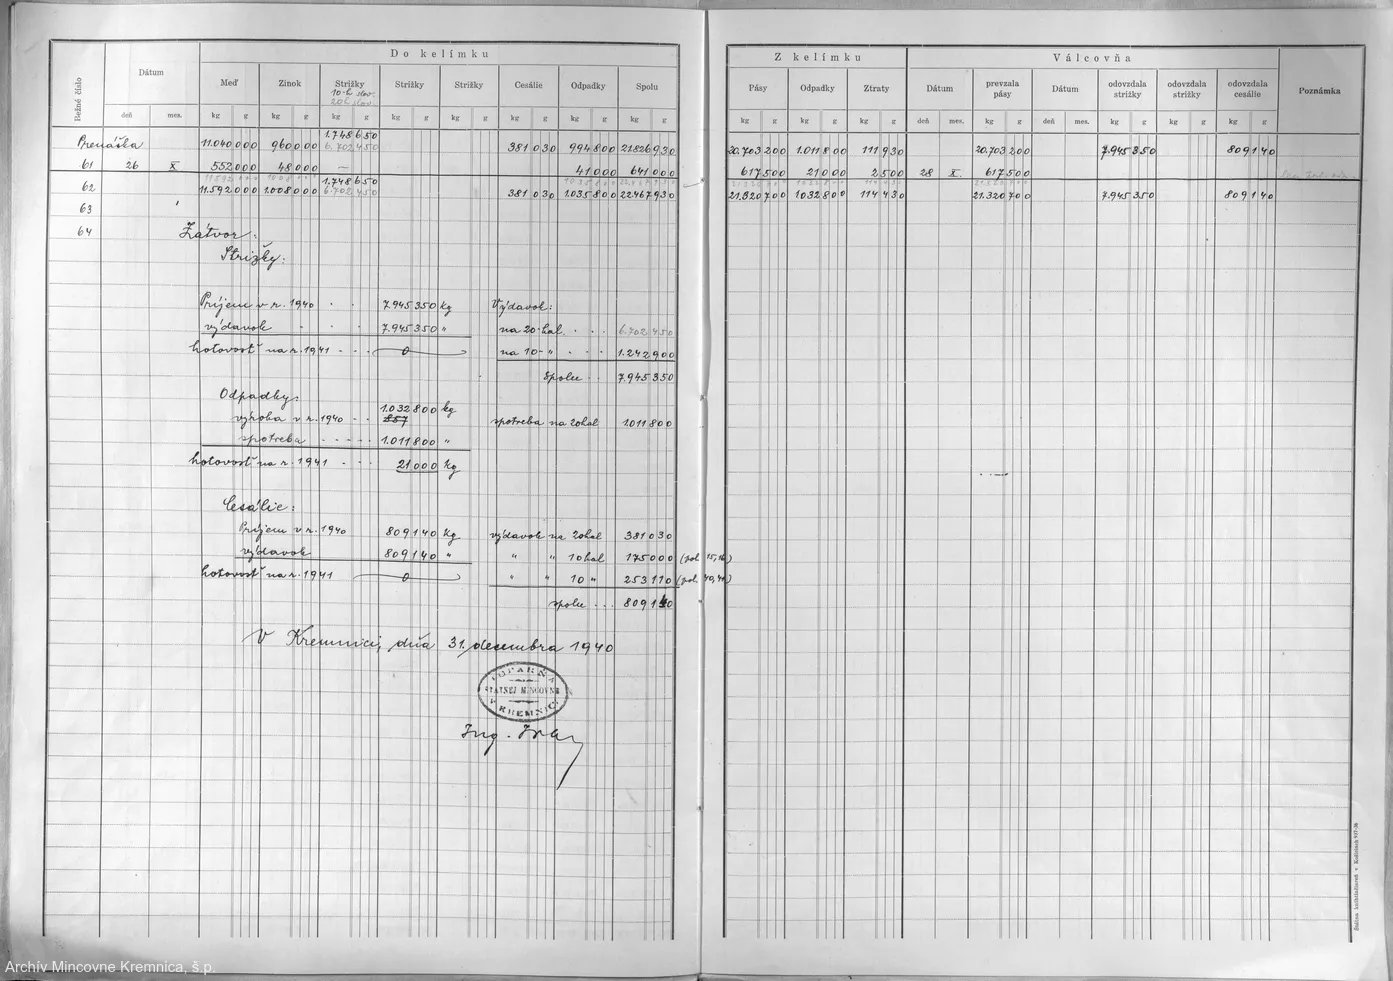 Do kelímku
Bežné číslo
Dátum
Meď
Zinok
Strižky
10-h slov.
20h slov.
Strižky
Strižky
Cesálie
Odpadky
Spolu
deň mes. kg g kg g kg g kg g kg g kg g kg g kg g
Prenáška 11.040 000 960 000 1.748 650 381 030 994 800 21.826 930
6.702 450
61 26 X 552 000 48 000 — 41 000 641 000
62 11.592 000 1.008 000 1.748 650 381 030 1.035 800 22.467 930
6.702 450
63
64 Zátvor:
Strižky:
Príjem v r. 1940 . . 7.945 350 kg Výdavok:
výdavok . . . 7.945 350 " na 20-hal. . . . 6.702 450
hotovosť na r. 1941 - - - 0 na 10- " . . . 1.242 900
spolu . . 7.945 350
Odpadky:
výroba v r. 1940 . . 1.032 800 kg spotreba na 20hal 1.011 800
spotreba - - - - - 1.011 800 "
hotovosť na r. 1941 - - - 21 000 kg
Cesálie:
Príjem v r. 1940 809 140 kg výdavok na 20hal 381 030
výdavok 809 140 " " " 10hal 175 000 (pol. 15,16)
hotovosť na r. 1941 0 " " 10 " 253 110 (pol. 40,41)
spolu . . . 809 140
V Kremnici, dňa 31. decembra 1940
ŠTÁTNEJ MINCOVNE
V KREMNICI
Ing.
Z kelímku
Válcovňa
Pásy
Odpadky
Ztraty
Dátum
prevzala pásy
Dátum
odovzdala strižky
odovzdala strižky
odovzdala cesálie
Poznámka
kg g kg g kg g deň mes. kg g deň mes. kg g kg g kg g
20.703 200 1.011 800 111 930 20.703 200 7.945 350 809 140
617 500 21 000 2 500 28 X. 617 500
21.320 700 1.032 800 114 430 21.320 700 7.945 350 809 140
Archív Mincovne Kremnica, š.p.